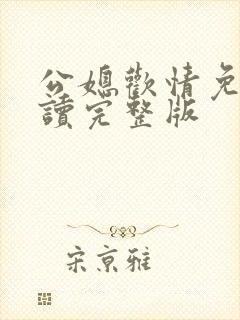 公媳歡情免
讀完整版
宋京雅